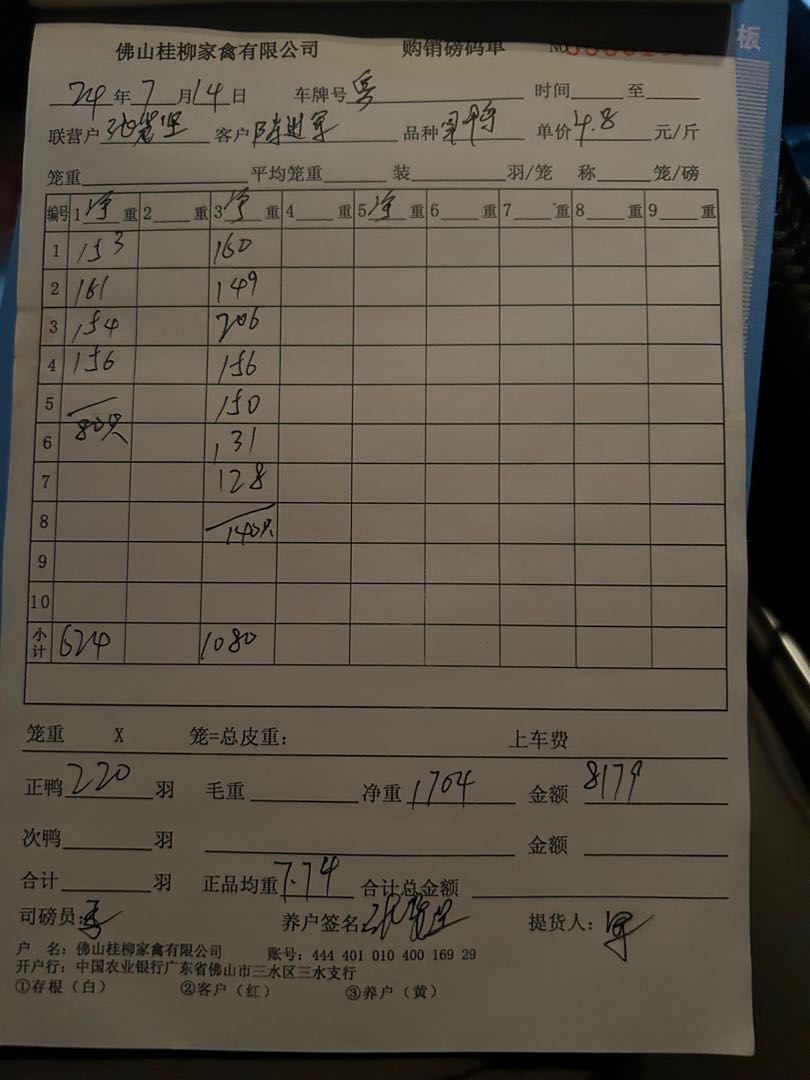 佛山桂柳家禽有限公司 购销磅码单 NO
24年7月14日 车牌号 粤 时间 至
联营户 客户 陈进军 品种 单价4.8元/斤
笼重 平均笼重 装 羽/笼 称 笼/磅
编号 1净重 2重 3净重 4重 5净重 6重 7重 8重 9重
1 153 160
2 161 149
3 154 206
4 156 156
5 150
6 80只 131
7 128
8 140只
9
10
小计 624 1080
笼重 X 笼=总皮重: 上车费
正鸭220羽 毛重 净重1704 金额8179
次鸭 羽 金额
合计 羽 正品均重7.74 合计总金额
司磅员: 养户签名 提货人:军
户 名: 佛山桂柳家禽有限公司 账号: 444 401 010 400 169 29
开户行: 中国农业银行广东省佛山市三水区三水支行
①存根（白） ②客户（红） ③养户（黄）
板